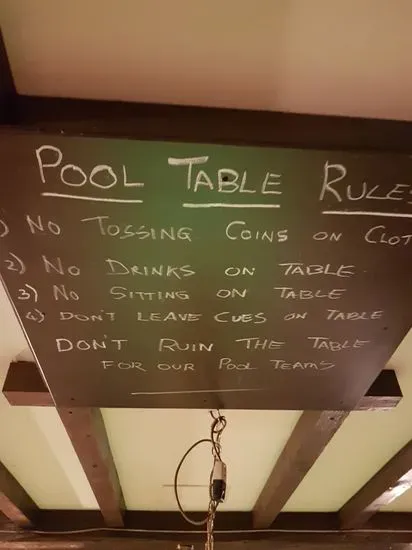 POOL TABLE RULES
1) NO TOSSING COINS ON CLOT
2) NO DRINKS ON TABLE
3) NO SITTING ON TABLE
4) DON'T LEAVE CUES ON TABLE
DON'T RUIN THE TABLE
FOR OUR POOL TEAMS